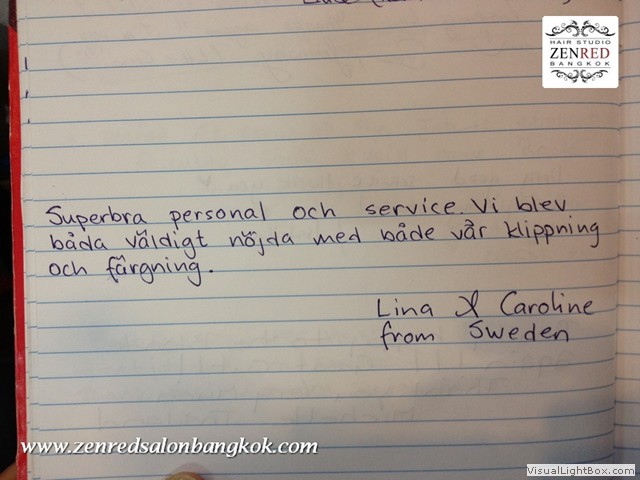 HAIR STUDIO
ZENRED
BANGKOK
Superbra personal och service. Vi blev
båda väldigt nöjda med både vår klippning
och färgning.
Lina & Caroline
from Sweden
www.zenredsalonbangkok.com
VisualLightBox.com